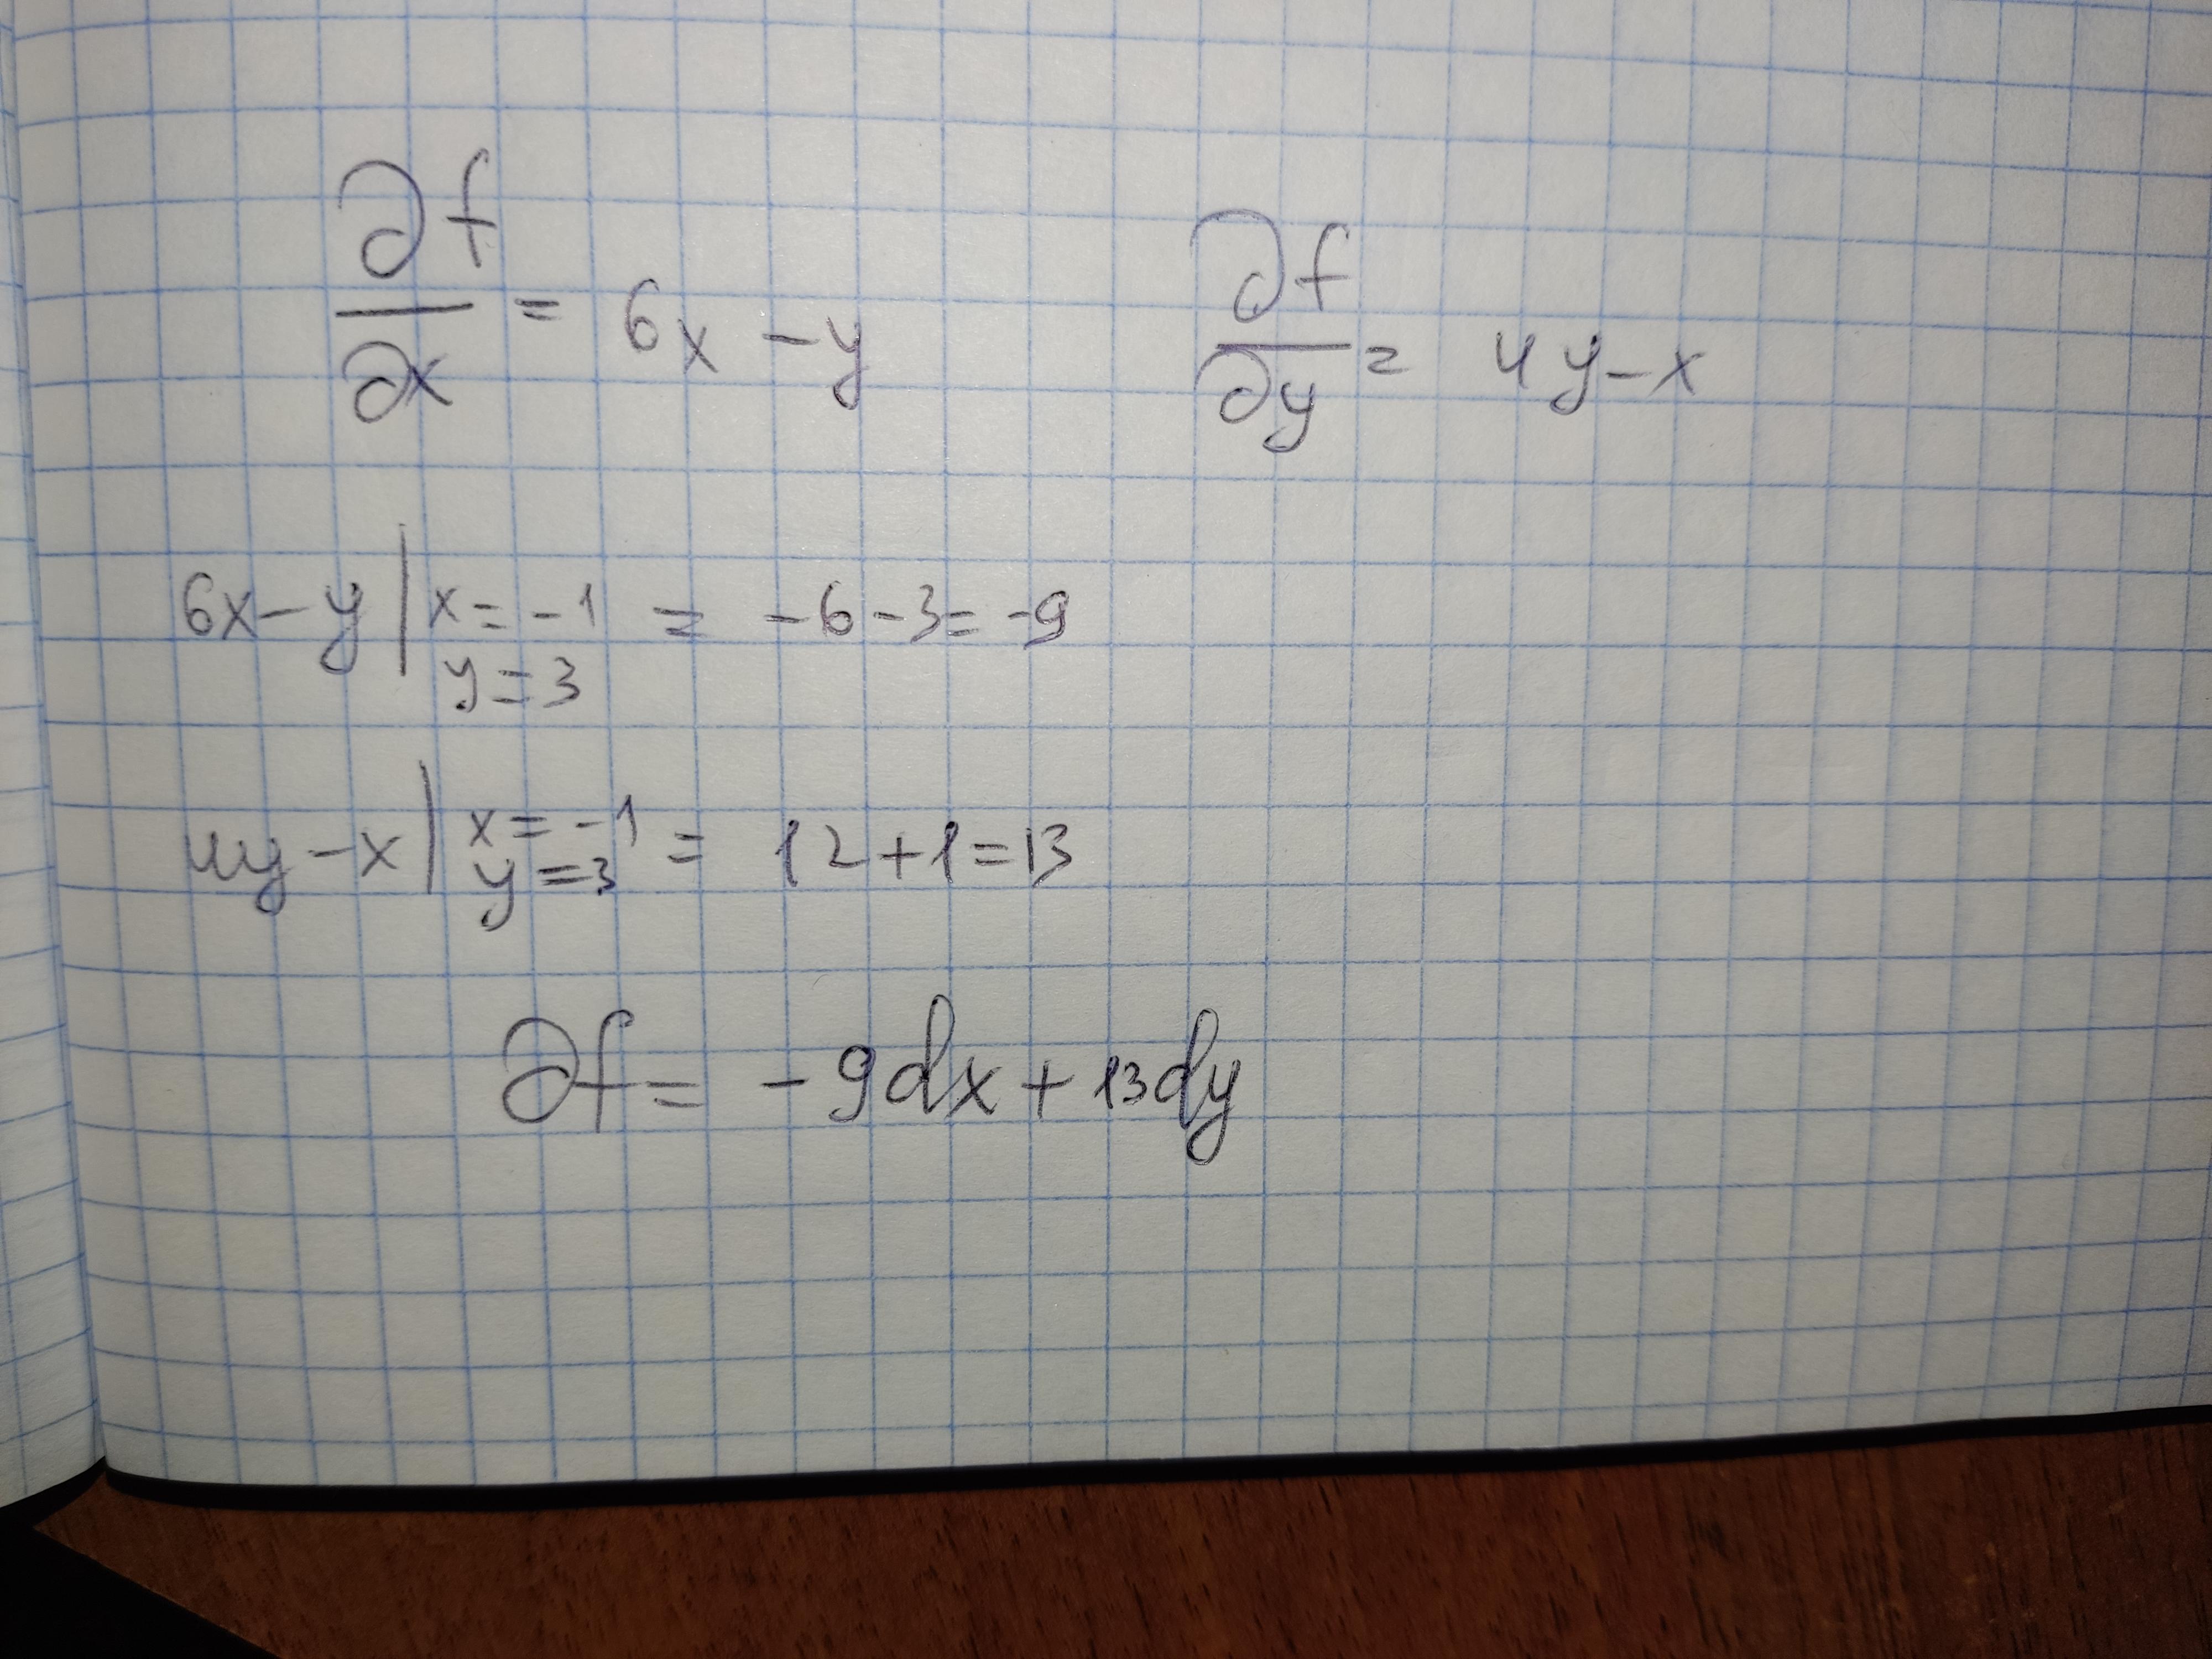 ∂f/∂x = 6x - y    ∂f/∂y = 4y - x
6x - y | x = -1 y = 3 = -6 - 3 = -9
4y - x | x = -1 y = 3 = 12 + 1 = 13
∂f = -9dx + 13dy